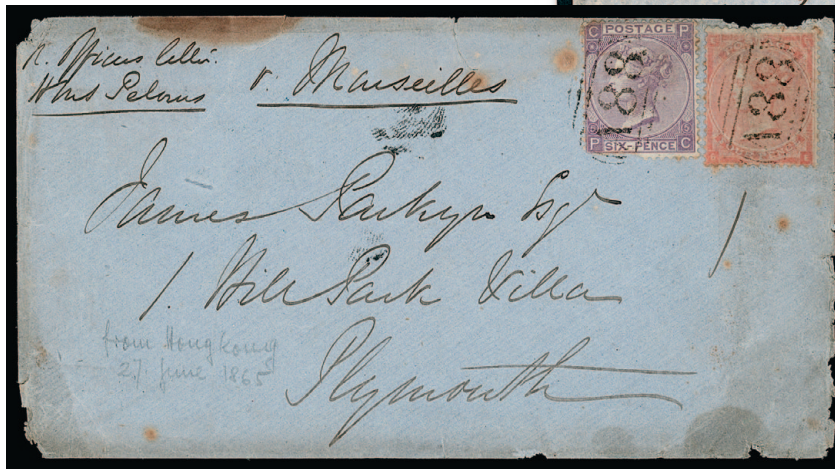 Officers letter
HMS Pelorus
v. Marseilles
C POSTAGE P
188
P SIX-PENCE C
188
James Parkyn Esqr
1. Hill Park Villa
Plymouth
from Hong Kong
27 June 1865